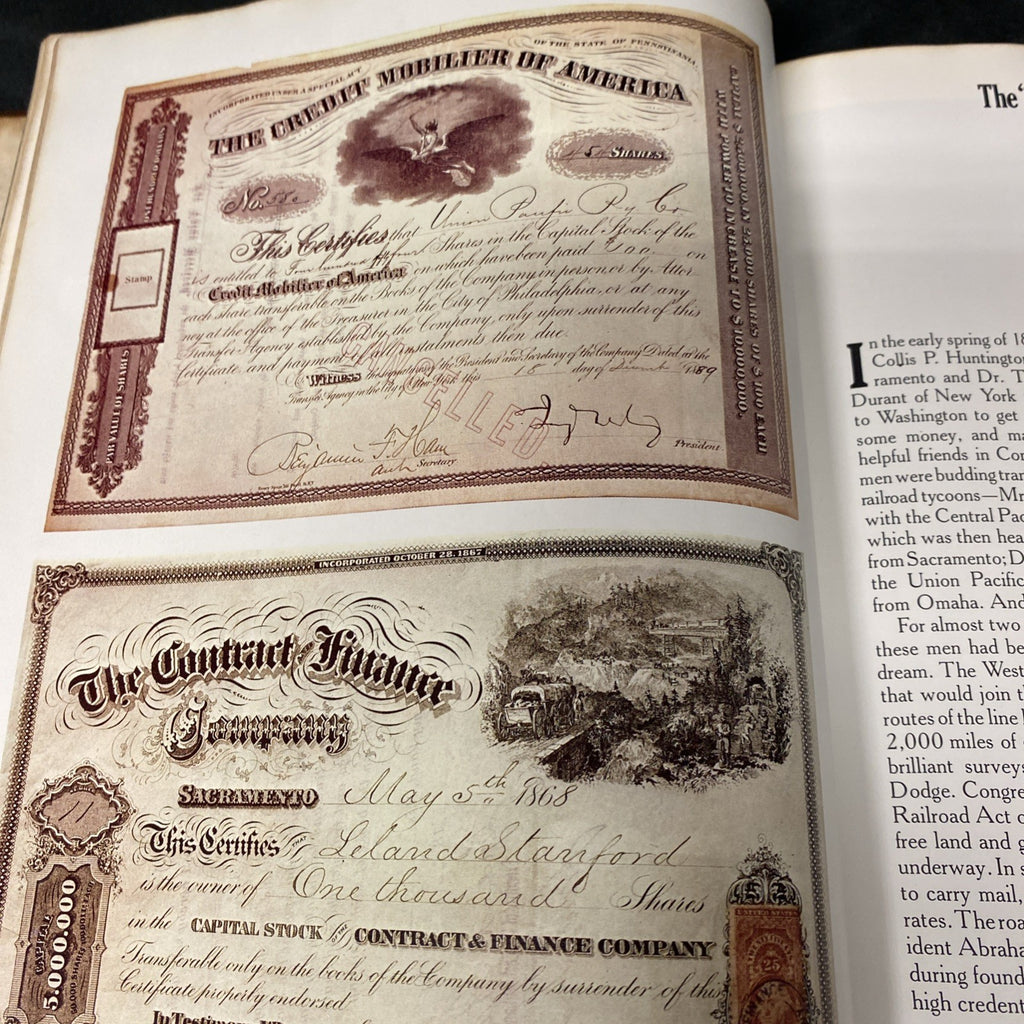 INCORPORATED UNDER A SPECIAL ACT
OF THE STATE OF PENNSYLVANIA
THE CREDIT MOBILIER OF AMERICA
No.
SHARES
This Certifies that Union Pacific Ry Co
is entitled to Four hundred Shares in the Capital Stock of the
Credit Mobilier of America on which have been paid $100 on
each share transferable on the Books of the Company in person or by Attor
ney at the office of the Treasurer in the City of Philadelphia, or at any
Transfer Agency established by the Company, only upon surrender of this
Certificate and payment of all instalments then due.
Witness the signatures of the President and Secretary of the Company Dated at the
Transfer Agency in the City of New York this 18 day of
CANCELLED
Benjamin F. Ham
Secretary
President
Stamp
PAR VALUE OF SHARES
CAPITAL $2,500,000 IN 25,000 SHARES OF $100 EACH
WITH POWER TO INCREASE TO $10,000,000.
INCORPORATED OCTOBER 28, 1867
The Contract & Finance
Company
SACRAMENTO May 5th 1868
11
This Certifies that Leland Stanford
is the owner of One thousand Shares
in the CAPITAL STOCK of the CONTRACT & FINANCE COMPANY
Transferable only on the books of the Company by surrender of this
Certificate properly endorsed
In
CAPITAL
5.000.000
The
In the early spring of 18
Collis P. Huntington
ramento and Dr. T
Durant of New York
to Washington to get
some money, and ma
helpful friends in Con
men were budding tran
railroad tycoons—Mr
with the Central Pac
which was then hea
from Sacramento; D
the Union Pacific
from Omaha. And
For almost two
these men had be
dream. The West
that would join t
routes of the line
2,000 miles of
brilliant surveys
Dodge. Congre
Railroad Act o
free land and g
underway. In s
to carry mail,
rates. The roa
ident Abraha
during found
high credent